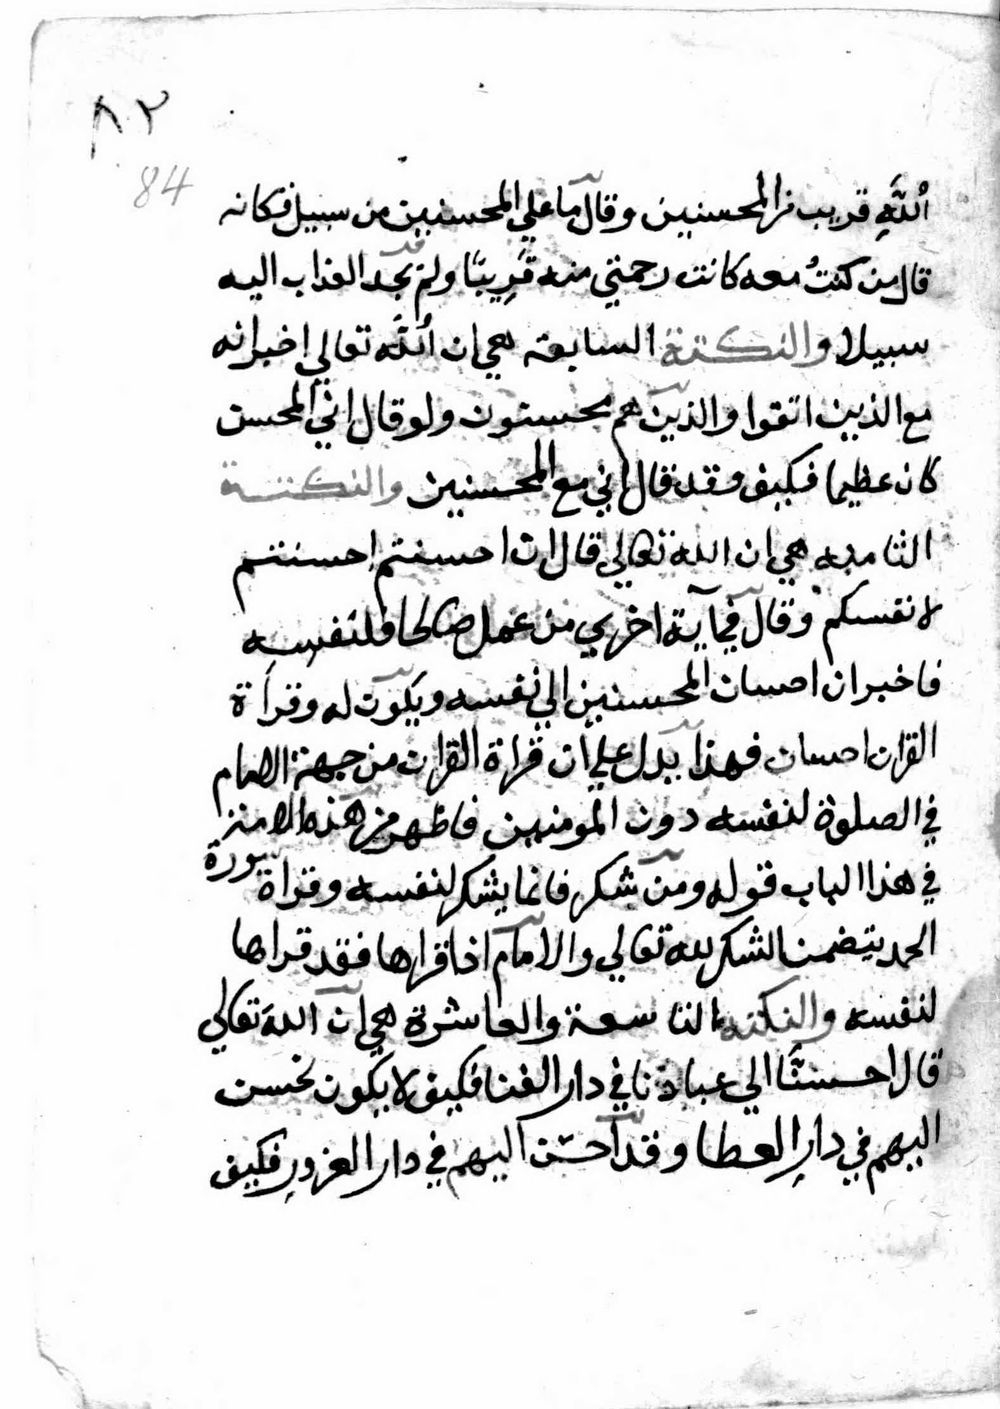 ٨٢
84
الله قريب من المحسنين وقال ما علي المحسنين من سبيل فكانه
قال من كنتُ معه كانت رحمتي منه قَرِيبًا ولم يجد العذاب اليه
سبيلا والنكتة السابعة هي ان الله تعالي اخبر انه
مع الذين اتقوا والذين هم محسنون ولو قال اني المحسن
كان عظيما فكيف وقد قال اني مع المحسنين والنكتة
الثامنه هي ان الله تعالي قال ان احسنتم احسنتم
لانفسكم وقال في آية اخري من عمل صالحا فلنفسه
فاخبر ان احسان المحسنين الي نفسه ويكون له وقراة
القران احسان فهذا يدل علي ان قراة القران من جهة الامام
في الصلوة لنفسه دون المومنين فاظهر من هذه الامنز
في هذا الباب قوله ومن شكر فانما يشكر لنفسه وقراة سورة
الحمد يتضمن الشكر لله تعالي والامام اذا قراها فقد قراها
لنفسه والنكته التاسعة والعاشرة هي ان الله تعالي
قال احسنَّا الي عبادنا في دار الفنا فكيف لا يكون نحسن
اليهم في دارِ العطا وقد احسن اليهم في دار الغرورِ فكيف